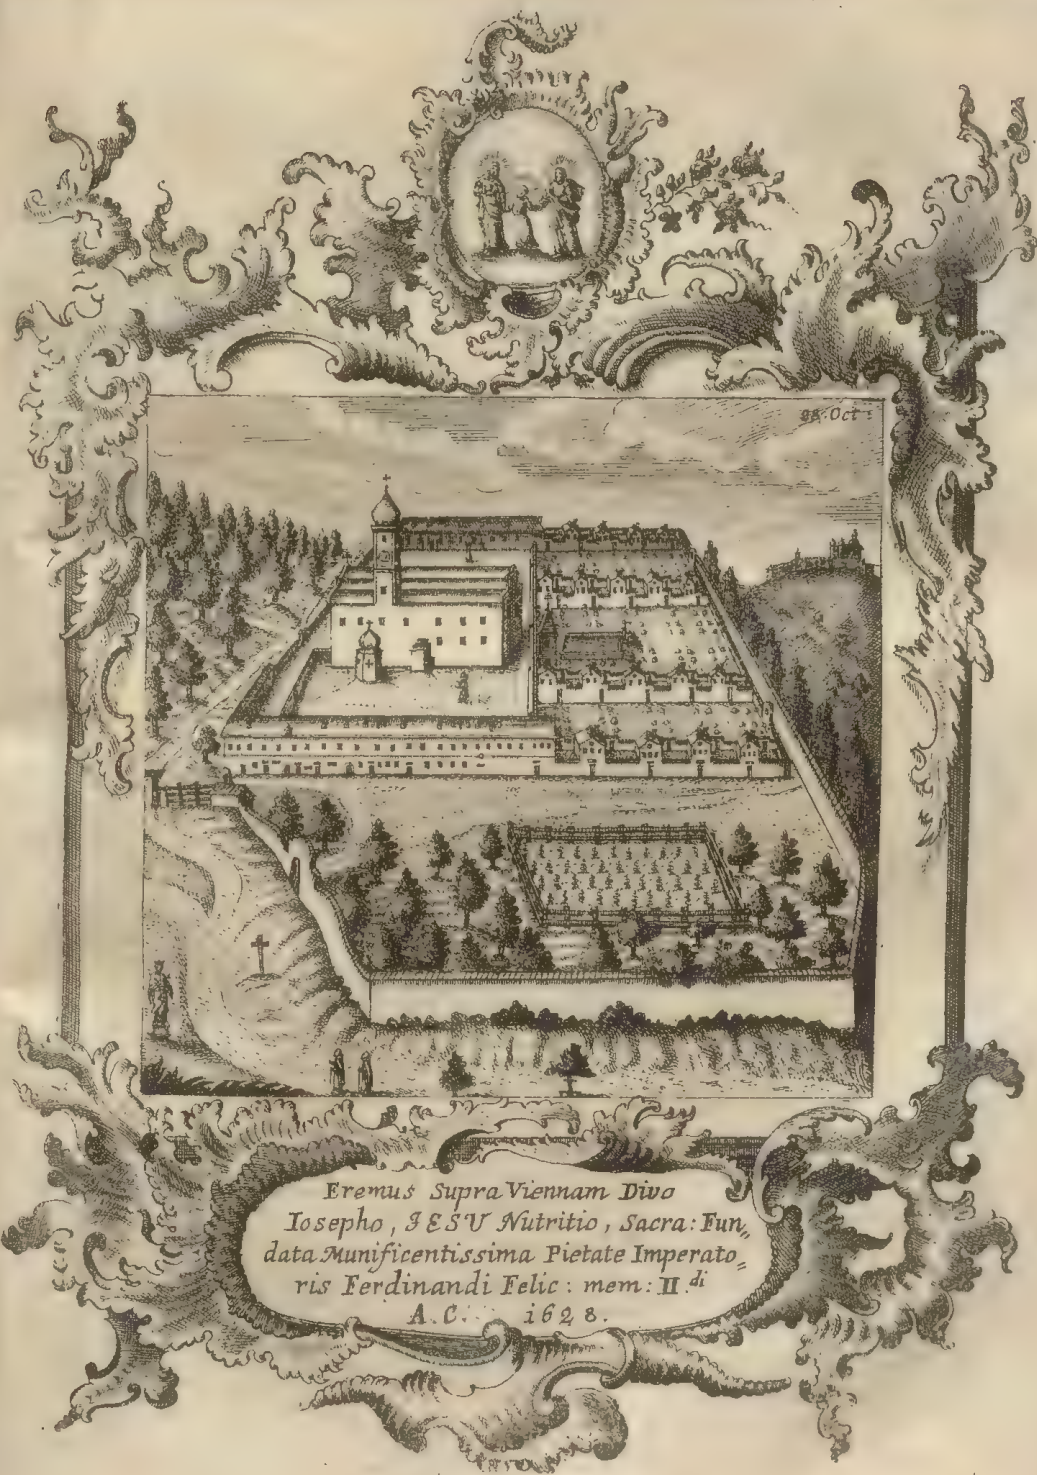 28. Oct:
Eremus Supra Viennam Divo
Iosepho, JESU Nutritio, Sacra: Fun„
data Munificentissima Pietate Imperato„
ris Ferdinandi Felic: mem: II.di
A. C. 1628.